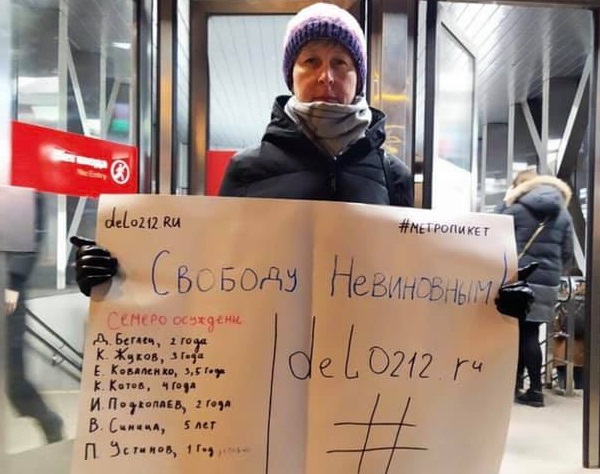 Нет входа
No Entry
delo212.RU
#МЕТРОПИКЕТ
Свободу Невиновным!
Семеро осуждены
Д. Беглец, 2 года
К. Жуков, 3 года
Е. Коваленко, 3,5 года
К. Котов, 4 года
И. Подкопаев, 2 года
В. Синица, 5 лет
П. Устинов, 1 год
delo212.ru
#